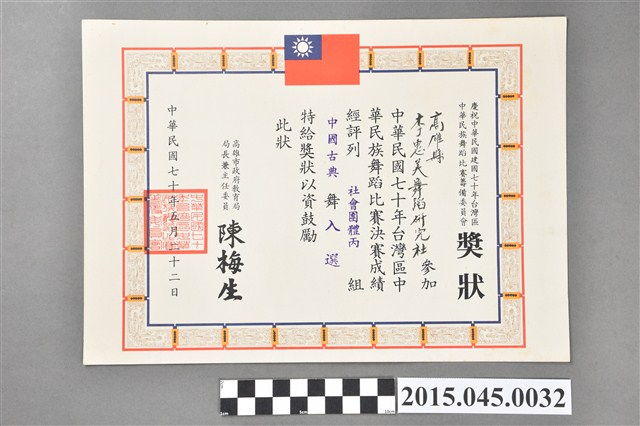 慶祝中華民國建國七十年台灣區
中華民族舞蹈比賽籌備委員會
獎狀
高雄縣
李惠美舞蹈研究社 參加
中華民國七十年台灣區中
華民族舞蹈比賽決賽成績
經評列 社會團體丙 組
中國古典 舞 入選
特給獎狀以資鼓勵
此狀
高雄市政府教育局
局長兼主任委員
陳梅生
中華民國七十年五月二十二日
2015.045.0032